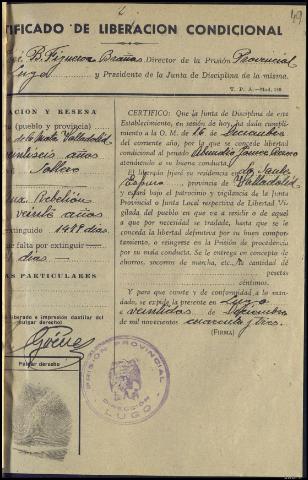 49
TIFICADO DE LIBERACION CONDICIONAL
B. Figueroa Brañas, Director de la Prisión Provincial
Lugo y Presidente de la Junta de Disciplina de la misma.
T. P. A.—Mod. 190
ACION Y RESEÑA
(pueblo y provincia)
Valladolid
años
Soltero
Rebelión
veinte años
extinguido 1489 días
que falta por extinguir
días
AS PARTICULARES
liberado e impresión dactilar del
(pulgar derecho)
Gomez
Pulgar derecho
CERTIFICO: Que la Junta de Disciplina de este
Establecimiento, en sesión de hoy ha dado cumpli-
miento a la O. M. de 16 de Diciembre
del corriente año, por la que se concede libertad
condicional al penado
atendiendo a su buena conducta.
El liberado fijará su residencia en
provincia de Valladolid
y estará bajo el patrocinio y vigilancia de la Junta
Provincial o Junta Local respectiva de Libertad Vi-
gilada del pueblo en que va a residir o de aquel
a que por necesidad se traslade, hasta que se le
conceda la libertad definitiva por su buen compor-
tamiento, o reingrese en la Prisión de procedencia
por su mala conducta. Se le entrega en concepto de
ahorros, socorro de marcha, etc., la cantidad de
pesetas
céntimos.
Y para que conste y de conformidad a lo man-
dado, se expide la presente en Lugo
a veintidós de Diciembre
de mil novecientos cuarenta y tres.
(FIRMA)
PRISIÓN PROVINCIAL
DIRECCIÓN
LUGO